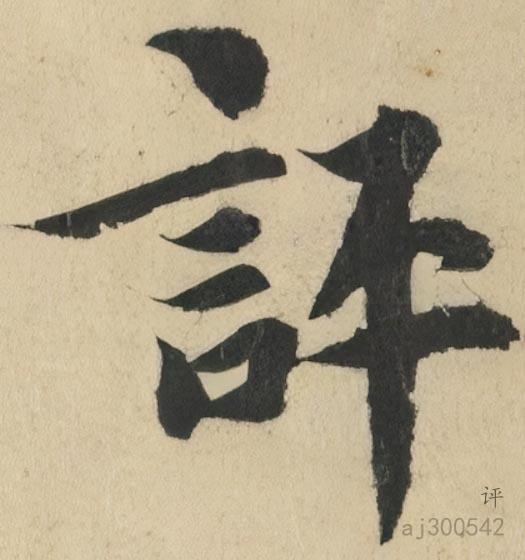 評
评
aj300542